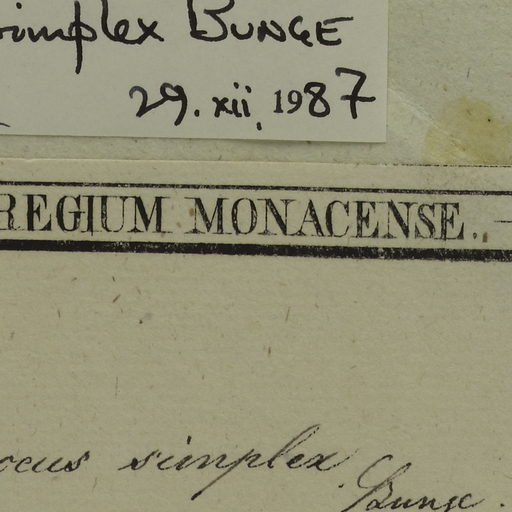 simplex BUNGE
29. xii. 1987
REGIUM MONACENSE.
ocus simplex
Bunge.